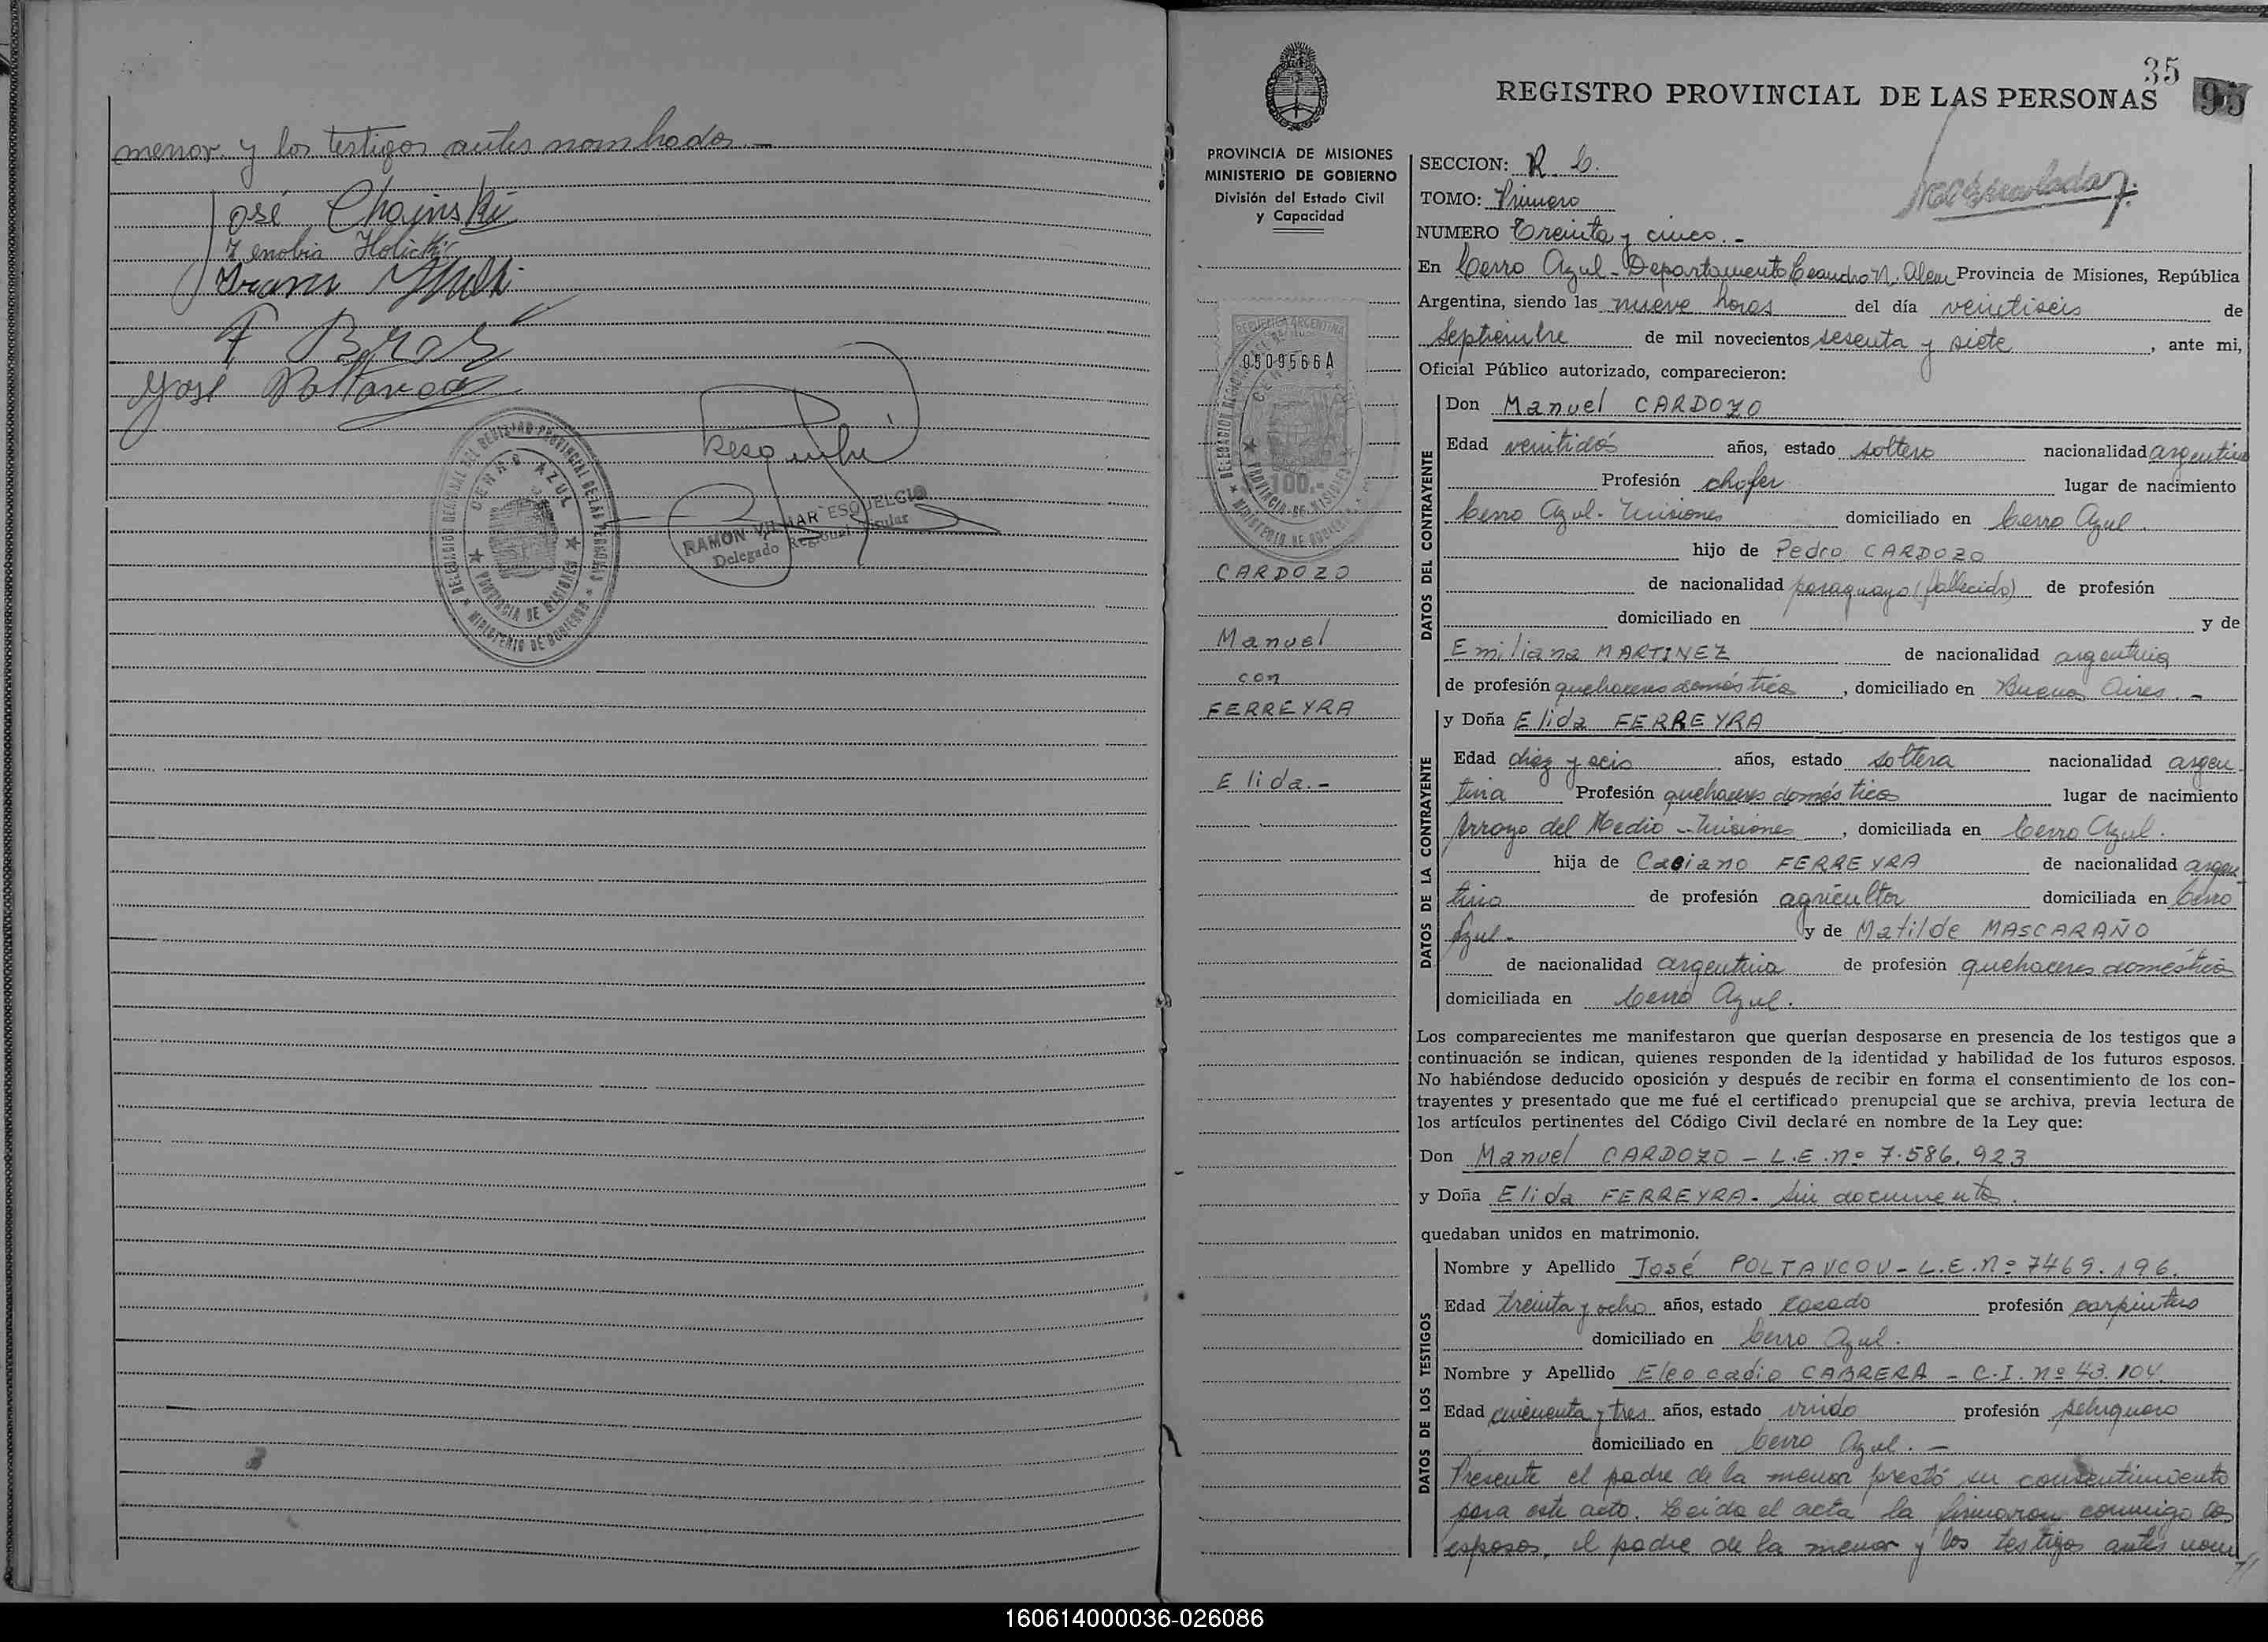 menor y los testigos antes nombrados.-
José Chojnski
Zenobia Holicki
F
José Poltavcov
DELEGACION REGIONAL DEL REGISTRO PROVINCIAL DE LAS PERSONAS
CERRO AZUL
PROVINCIA DE MISIONES
MINISTERIO DE GOBIERNO
RAMON VILMAR ESQUELCIO
Delegado Regional Titular
35
REGISTRO PROVINCIAL DE LAS PERSONAS
95
PROVINCIA DE MISIONES
MINISTERIO DE GOBIERNO
División del Estado Civil
y Capacidad
REPUBLICA ARGENTINA
0509566A
100.-
CARDOZO
Manuel
con
FERREYRA
Elida.-
SECCION: R. C.
TOMO: Primero
NUMERO Treinta y cinco.-
En Cerro Azul - Departamento Leandro N. Alem Provincia de Misiones, República
Argentina, siendo las nueve horas del día veintiseis de
Septiembre de mil novecientos sesenta y siete, ante mi,
Oficial Público autorizado, comparecieron:
DATOS DEL CONTRAYENTE
Don Manuel CARDOZO
Edad veintidós años, estado soltero nacionalidad argentina
Profesión chofer lugar de nacimiento
Cerro Azul - Misiones domiciliado en Cerro Azul.
hijo de Pedro CARDOZO
de nacionalidad paraguayo (fallecido) de profesión
domiciliado en y de
Emiliana MARTINEZ de nacionalidad argentina
de profesión quehaceres domésticos, domiciliado en Buenos Aires.-
DATOS DE LA CONTRAYENTE
y Doña Elida FERREYRA
Edad diez y seis años, estado soltera nacionalidad argen
tina Profesión quehaceres domésticos lugar de nacimiento
Arroyo del Medio - Misiones, domiciliada en Cerro Azul.
hija de Casiano FERREYRA de nacionalidad argen-
tino de profesión agricultor domiciliada en Cerro
Azul.- y de Matilde MASCARAÑO
de nacionalidad argentina de profesión quehaceres domésticos
domiciliada en Cerro Azul.
Los comparecientes me manifestaron que querían desposarse en presencia de los testigos que a
continuación se indican, quienes responden de la identidad y habilidad de los futuros esposos.
No habiéndose deducido oposición y después de recibir en forma el consentimiento de los con-
trayentes y presentado que me fué el certificado prenupcial que se archiva, previa lectura de
los artículos pertinentes del Código Civil declaré en nombre de la Ley que:
Don Manuel CARDOZO - L.E. nº 7.586.923
y Doña Elida FERREYRA - Sin documentos.
quedaban unidos en matrimonio.
DATOS DE LOS TESTIGOS
Nombre y Apellido José POLTAVCOV - L.E. nº 7469.196.
Edad treinta y ocho años, estado casado profesión carpintero
domiciliado en Cerro Azul.
Nombre y Apellido Eleocadio CABRERA - C.I. nº 43.104.
Edad cincuenta y tres años, estado viudo profesión peluquero
domiciliado en Cerro Azul. -
Presente el padre de la menor prestó su consentimiento
para este acto. Leída el acta la firmaron conmigo los
esposos, el padre de la menor y los testigos antes nom
160614000036-026086